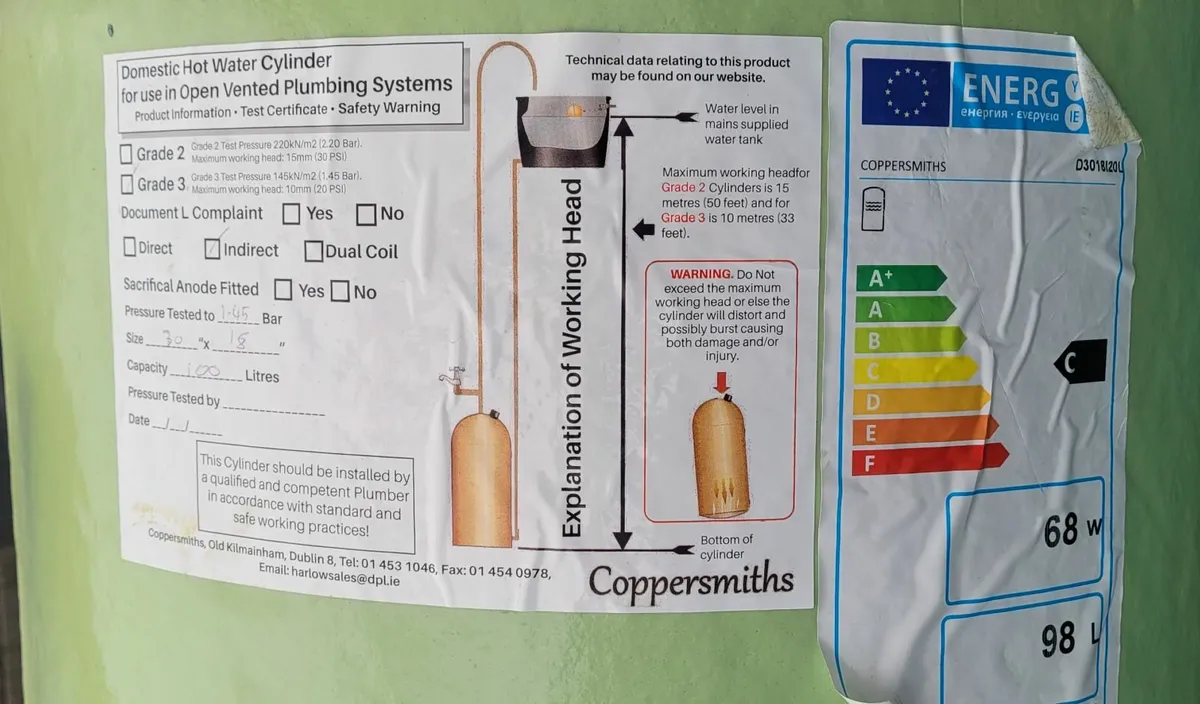 Domestic Hot Water Cylinder
for use in Open Vented Plumbing Systems
Product Information • Test Certificate • Safety Warning
Grade 2 Grade 2 Test Pressure 220kN/m2 (2.20 Bar).
Maximum working head: 15mm (30 PSI)
Grade 3 Grade 3 Test Pressure 145kN/m2 (1.45 Bar).
Maximum working head: 10mm (20 PSI)
Document L Complaint Yes No
Direct Indirect Dual Coil
Sacrifical Anode Fitted Yes No
Pressure Tested to 1.45 Bar
Size 30 "x 18 "
Capacity 100 Litres
Pressure Tested by
Date _/_/_
This Cylinder should be installed by
a qualified and competent Plumber
in accordance with standard and
safe working practices!
Coppersmiths, Old Kilmainham, Dublin 8, Tel: 01 453 1046, Fax: 01 454 0978,
Email: harlowsales@dpl.ie
Explanation of Working Head
Technical data relating to this product
may be found on our website.
Water level in
mains supplied
water tank
Maximum working headfor
Grade 2 Cylinders is 15
metres (50 feet) and for
Grade 3 is 10 metres (33
feet).
WARNING. Do Not
exceed the maximum
working head or else the
cylinder will distort and
possibly burst causing
both damage and/or
injury.
Bottom of
cylinder
Coppersmiths
ENERG Y
енергия · ενεργεια IE
COPPERSMITHS D3018I20L
A+
A
B
C
D
E
F
C
68 W
98 L